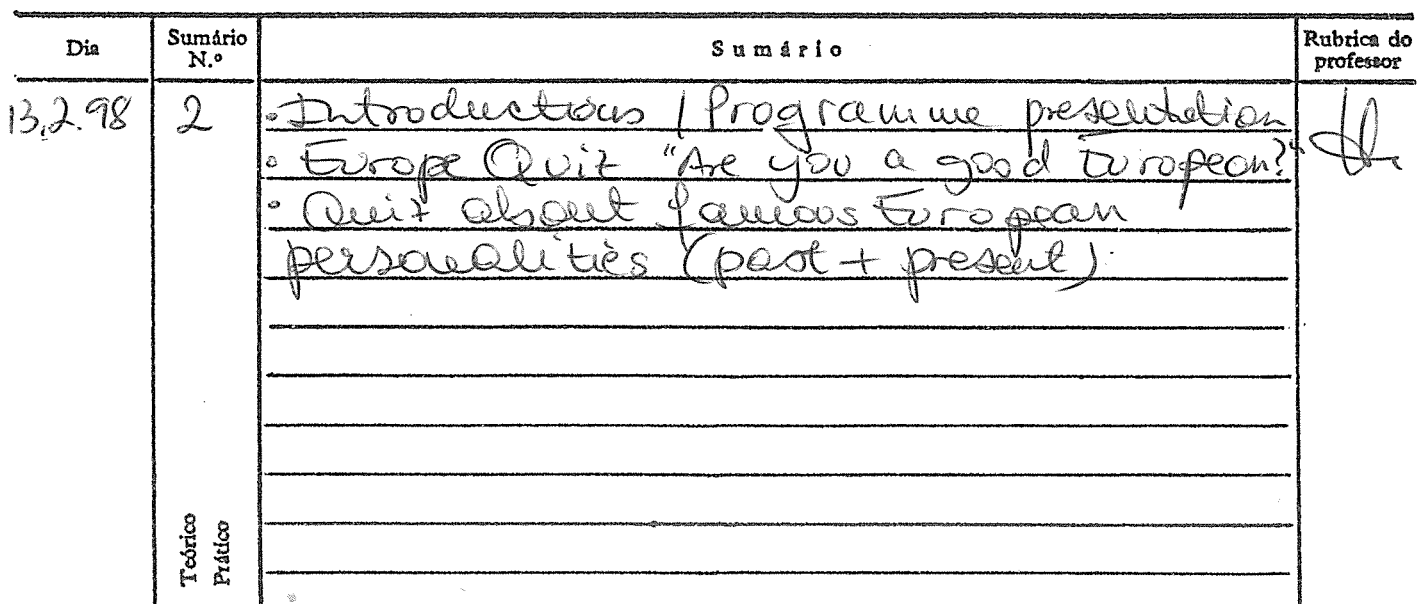 Dia Sumário N.º Sumário Rubrica do professor
13.2.98 2 • Introductions / Programme presentation
• Europe Quiz "Are you a good European?"
• Quiz about famous European
personalities (past + present).
Teórico
Prático